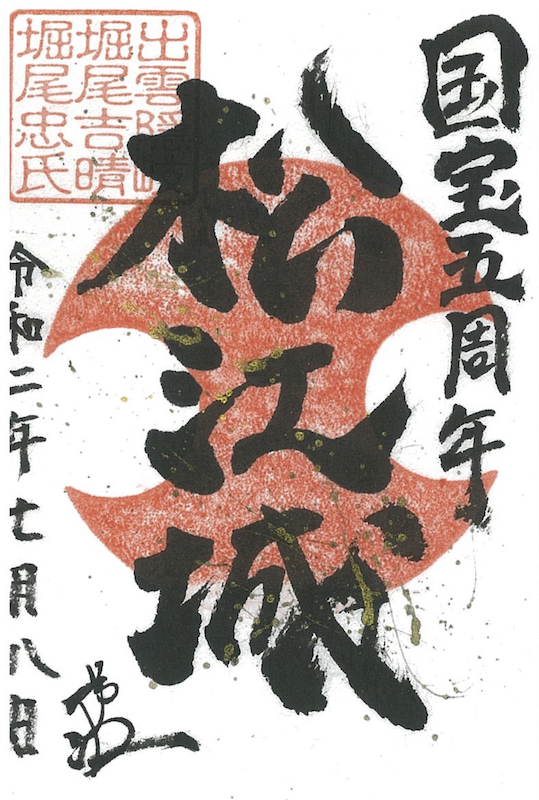 国宝五周年
松江城
出雲隠岐
堀尾吉晴
堀尾忠氏
令和二年七月八日